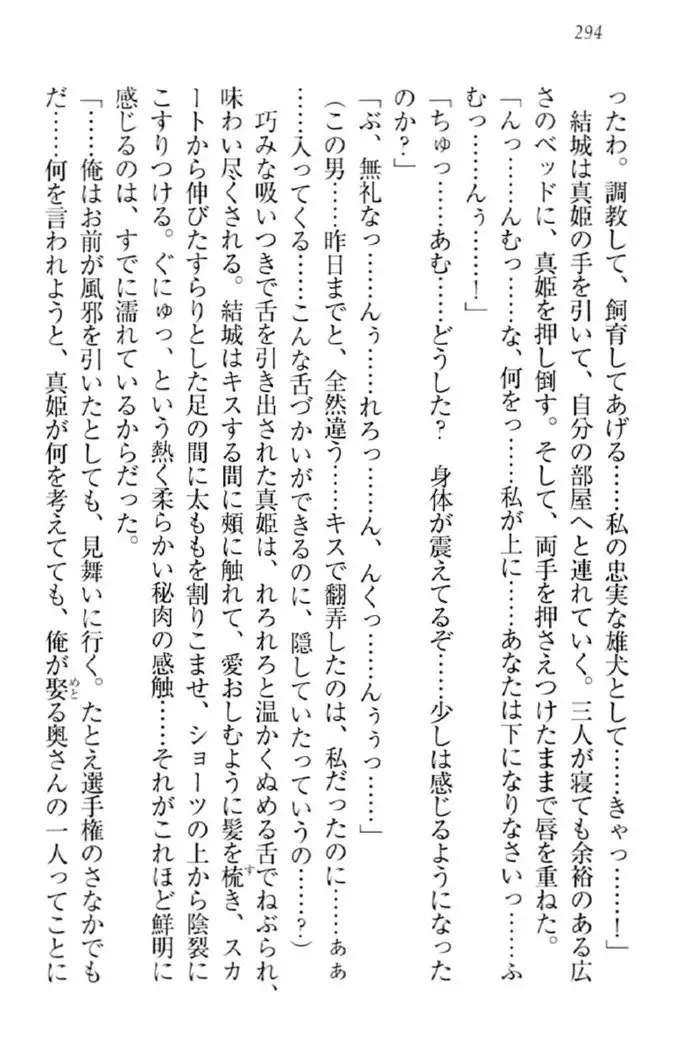 294
ったわ。調教して、飼育してあげる……私の忠実な雄犬として……きゃっ……！」
結城は真姫の手を引いて、自分の部屋へと連れていく。三人が寝ても余裕のある広
さのベッドに、真姫を押し倒す。そして、両手を押さえつけたままで唇を重ねた。
「んっ……んむっ……な、何をっ……私が上に……あなたは下になりなさいっ……ふ
むっ……んぅ……！」
「ちゅっ……あむ……どうした？　身体が震えてるぞ……少しは感じるようになった
のか？」
「ぶ、無礼なっ……んぅ……れろっ……ん、んくっ……んぅぅっ……」
（この男……昨日までと、全然違う……キスで翻弄したのは、私だったのに……ぁぁ
……入ってくる……こんな舌づかいができるのに、隠していたっていうの……？）
巧みな吸いつきで舌を引き出された真姫は、れろれろと温かくぬめる舌でねぶられ、
味わい尽くされる。結城はキスする間に頬に触れて、愛おしむように髪を梳す き、スカ
ートから伸びたすらりとした足の間に太ももを割りこませ、ショーツの上から陰裂に
こすりつける。ぐにゅっ、という熱く柔らかい秘肉の感触……それがこれほど鮮明に
感じるのは、すでに濡れているからだった。
「……俺はお前が風邪を引いたとしても、見舞いに行く。たとえ選手権のさなかでも
だ……何を言われようと、真姫が何を考えてても、俺が娶めと る奥さんの一人ってことに